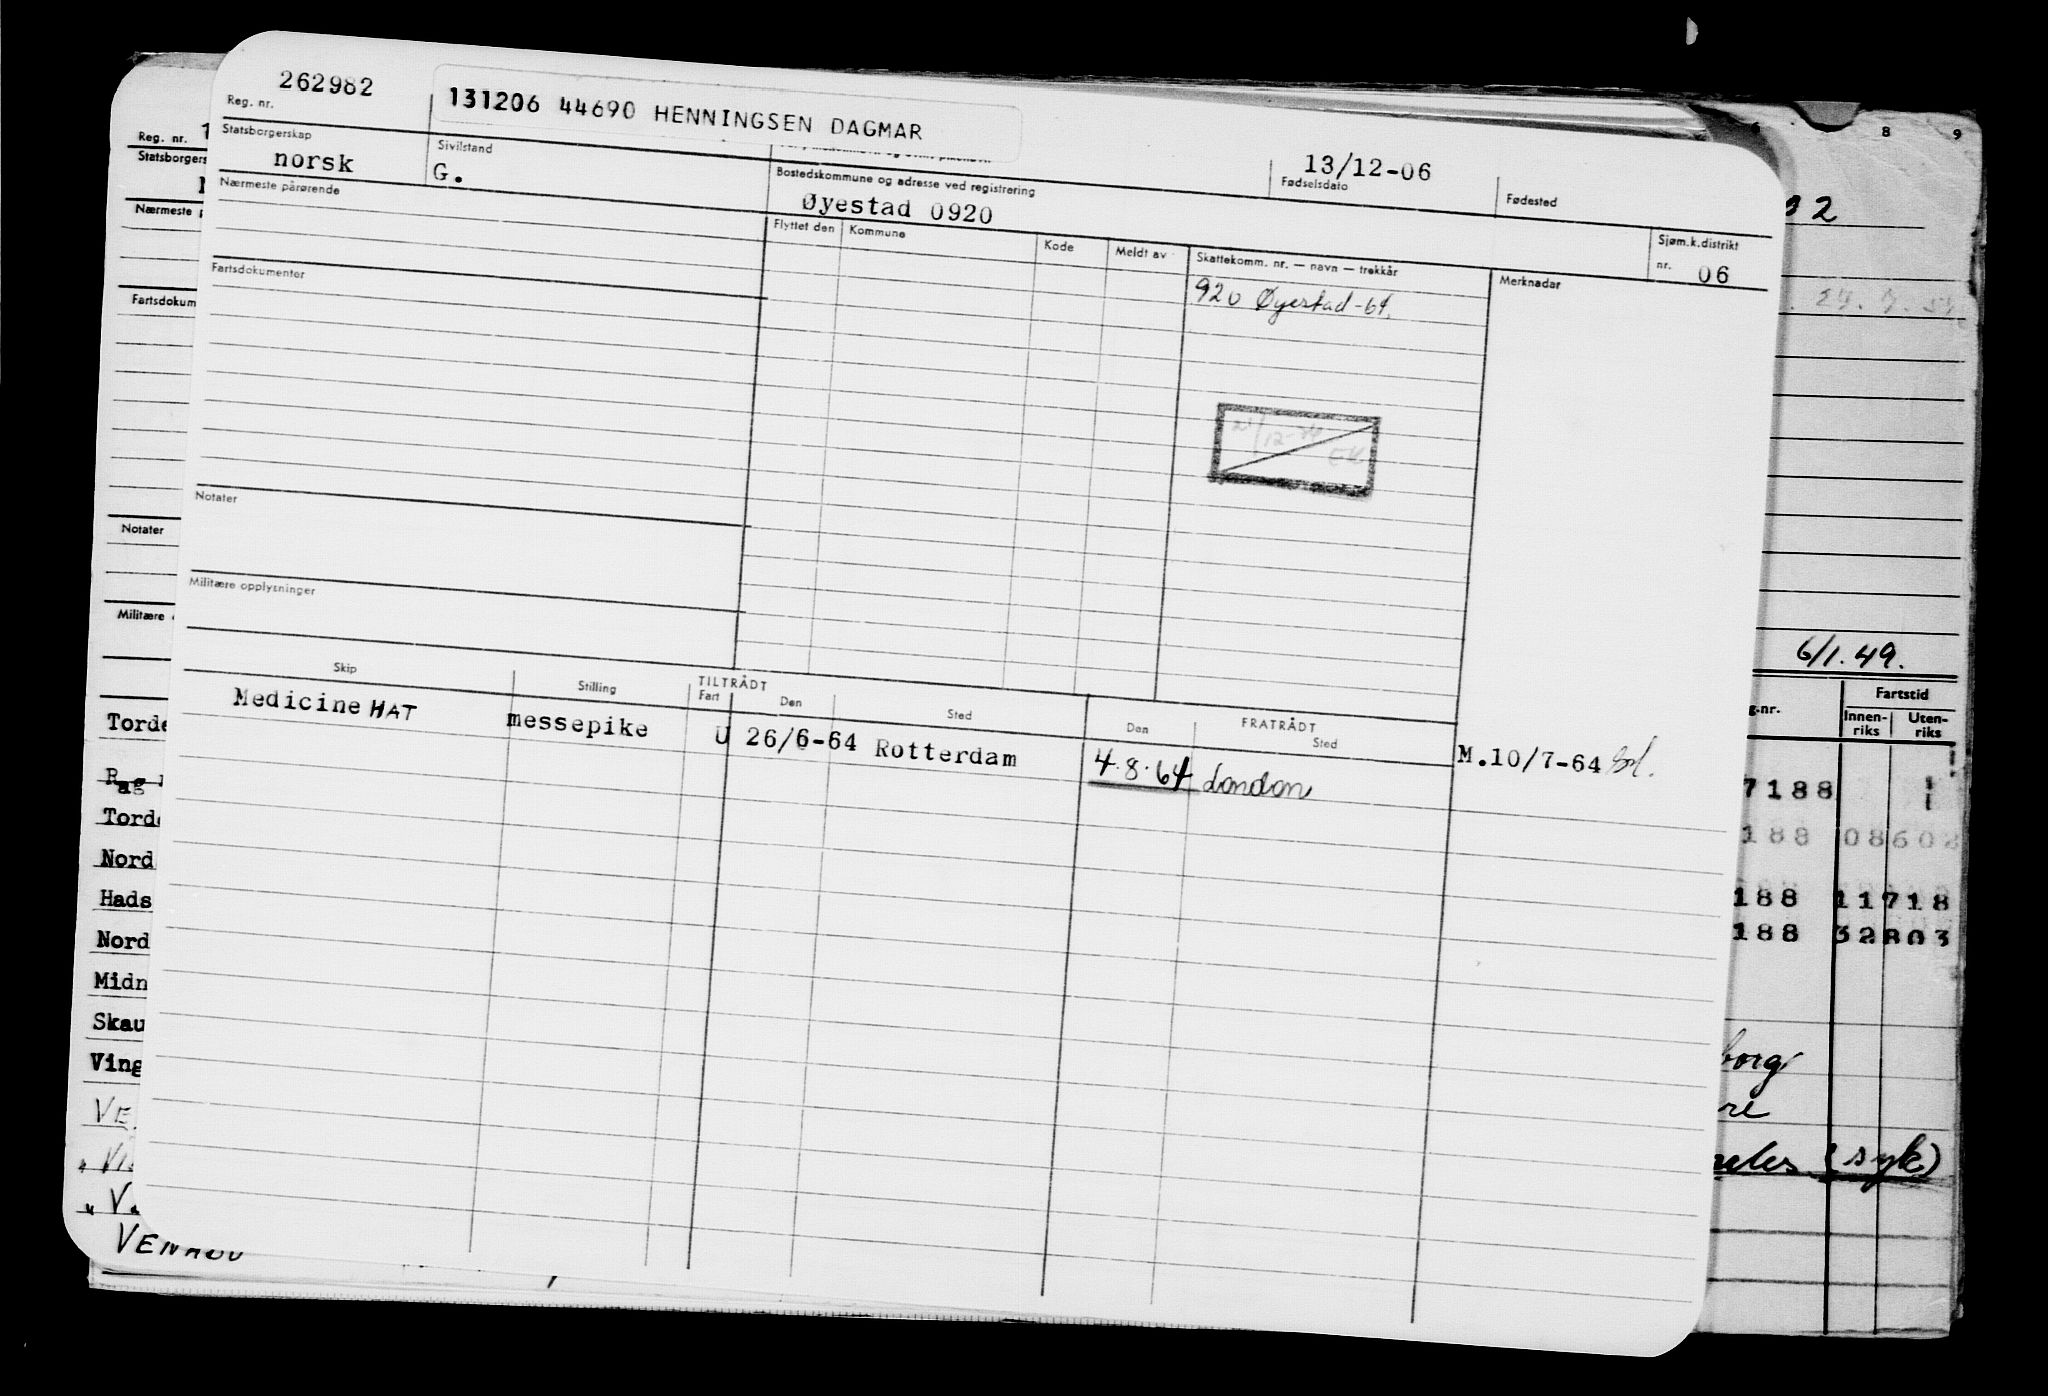 262982
Reg. nr.
131206 44690 HENNINGSEN DAGMAR
Statsborgerskap
norsk
Sivilstand
G.
13/12-06
Fødselsdato
Fødested
Nærmeste pårørende
Bostedskommune og adresse ved registrering
Øyestad 0920
Sjøm.k.distrikt
nr. 06
Flyttet den
Kommune
Kode
Meldt av
Skattekomm. nr. — navn — trekkår
Merknadar
920 Øyestad-64.
Fartsdokumenter
Notater
Militære opplysninger
Skip
Stilling
TILTRÅDT
Fart
Den
Sted
FRATRÅDT
Den
Sted
Medicine HAT
messepike
U 26/6-64 Rotterdam
4.8.64 London
M.10/7-64
Reg. nr.
Notater
Militære
Torde
Nord
Hads
Nord
Midn
Skau
Ving
8 9
6/1.49.
Fartstid
Innen-
riks
Uten-
riks
7188
188 08602
188 11718
188 32803
borg
(syk)